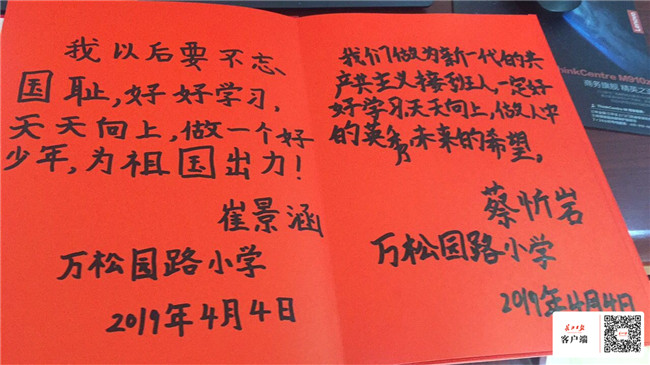 我以后要不忘
国耻,好好学习,
天天向上,做一个好
少年,为祖国出力!
崔景涵
万松园路小学
2019年4月4日
我们做为新一代的共
产共主义接班人,一定好
好学习,天天向上,做人中
的英秀,未来的希望。
蔡忻岩
万松园路小学
2019年4月4日
ThinkCentre M910x
商务旗舰 精英之
长江日报
客户端